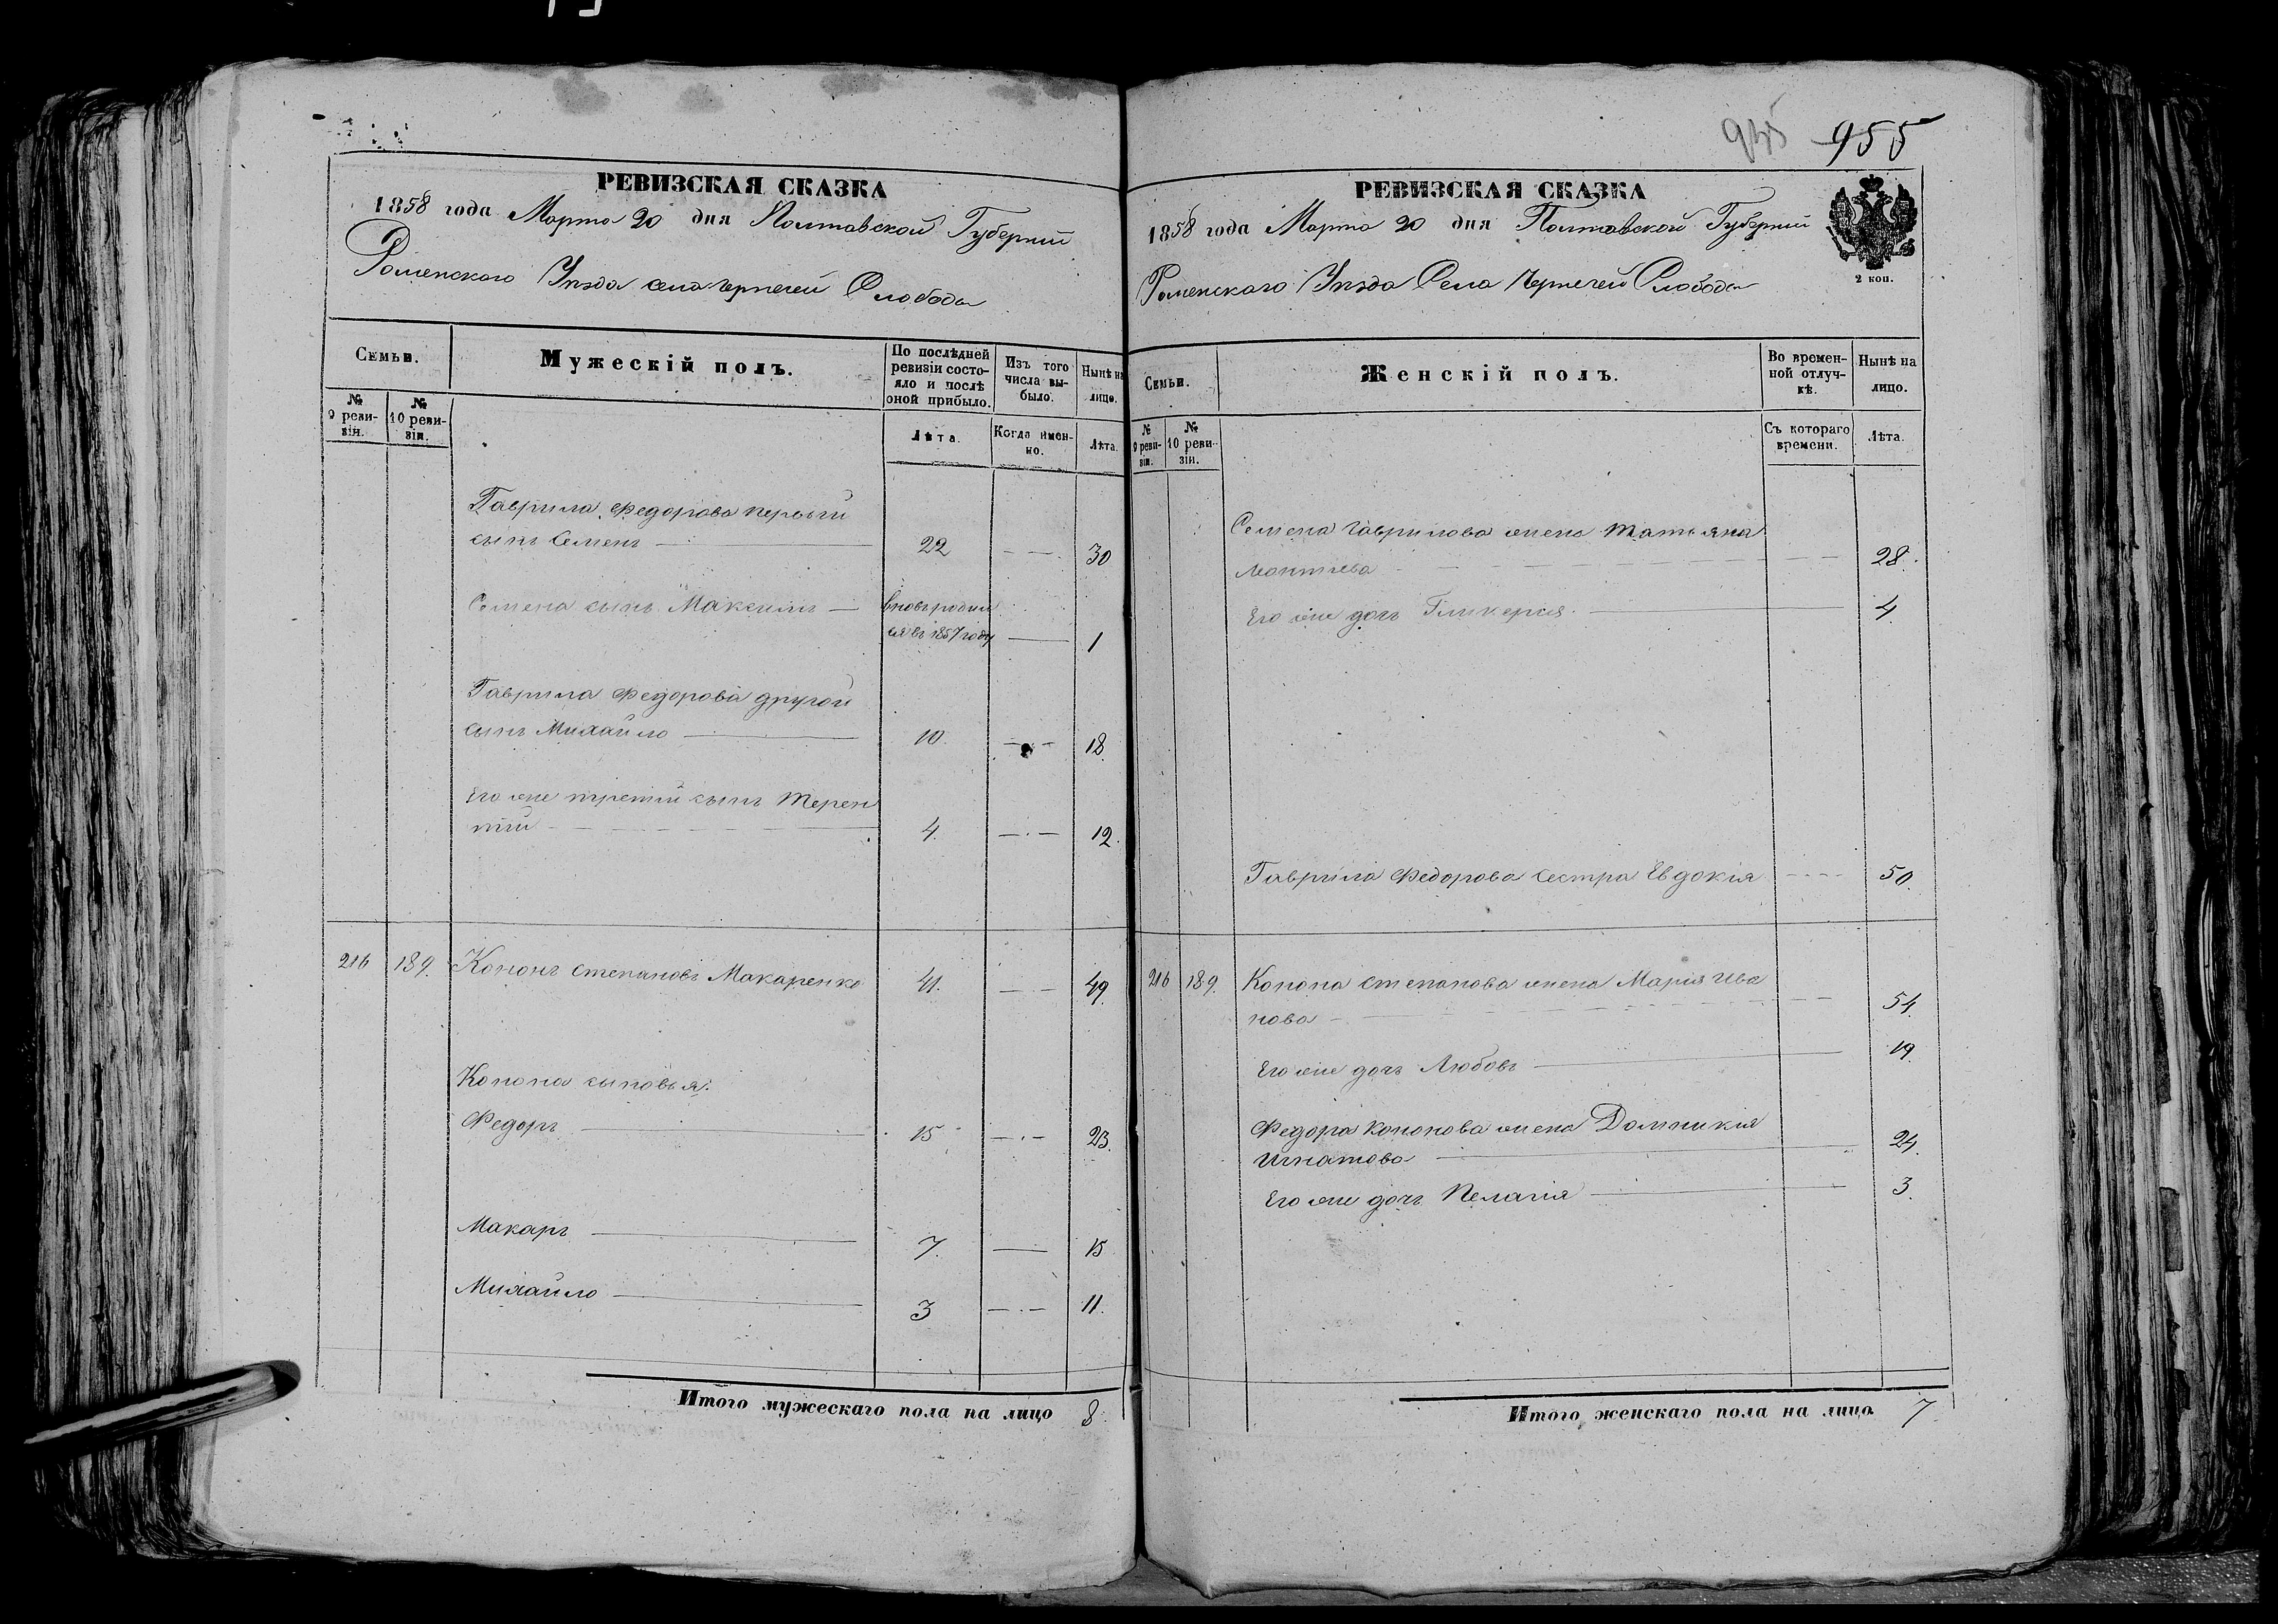 935 955
РЕВИЗСКАЯ СКАЗКА
1858 года Марта 20 дня Полтавской Губернiи
Роменского Уѣзда села Чернечей Слободы
Семьи.
Мужескiй полъ.
По послѣдней
ревизiи состо-
яло и послѣ
оной прибыло.
Изъ того
числа вы-
было.
Нынѣ на
лицо.
№
9 реви-
зiи.
№
10 реви-
зiи.
Лѣта.
Когда имен-
но.
Лѣта.
Гаврила Федорова первый
сынъ Семенъ 22 30
Семена сынъ Максимъ вновь родил
ся въ 1857 году 1
Гаврила Федорова другой
сынъ Михайло 10. 18.
Его же третiй сынъ Терен
тiй 4. 12.
216 189. Кононъ Степановъ Макаренко 41. 49.
Конона сыновья:
Федоръ 15 23.
Макаръ 7. 15
Михайло 3 11.
Итого мужескаго пола на лицо 8.
РЕВИЗСКАЯ СКАЗКА
1858 года Марта 20 дня Полтавской Губернiи
Роменского Уѣзда Села Чернечей Слободы
2 коп.
Семьи.
Женскiй полъ.
Во времен-
ной отлуч-
кѣ.
Нынѣ на
лицо.
№
9 реви-
зiи.
№
10 реви-
зiи.
Съ котораго
времени.
Лѣта.
Семена Гаврилова жена Татьяна
Леонтьева 28.
Его же дочь Гликерiя 4.
Гаврила Федорова сестра Евдокiя 50.
216 189. Конона Степанова жена Марiя Ива
нова 54.
Его же дочь Любовь 19.
Федора Кононова жена Домникiя
Игнатова 24.
Его же дочь Пелагiя 3.
Итого женскаго пола на лицо 7